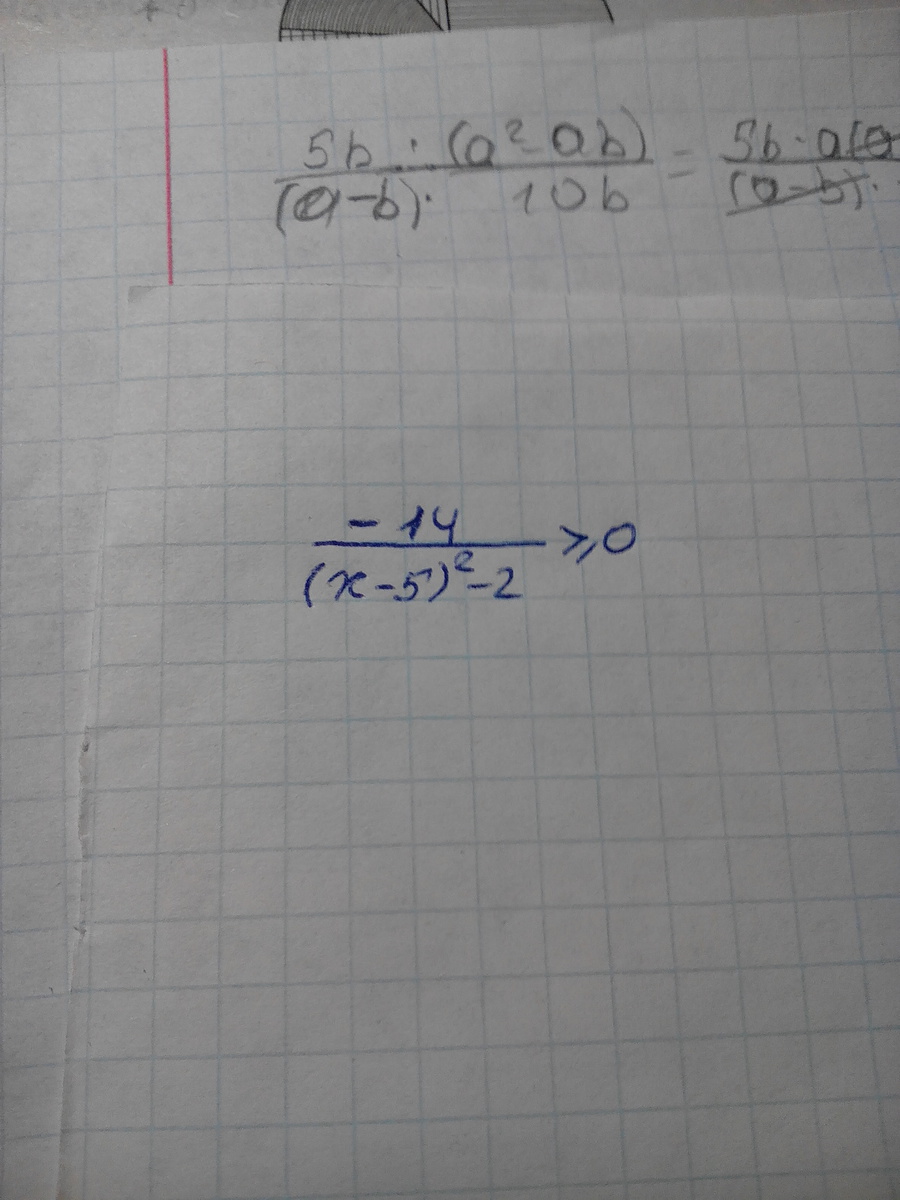 5b · (a² - ab) / (a-b) · 10b = 5b · a(a / (a-b) ·
-14 / (x-5)² - 2 ⩾ 0